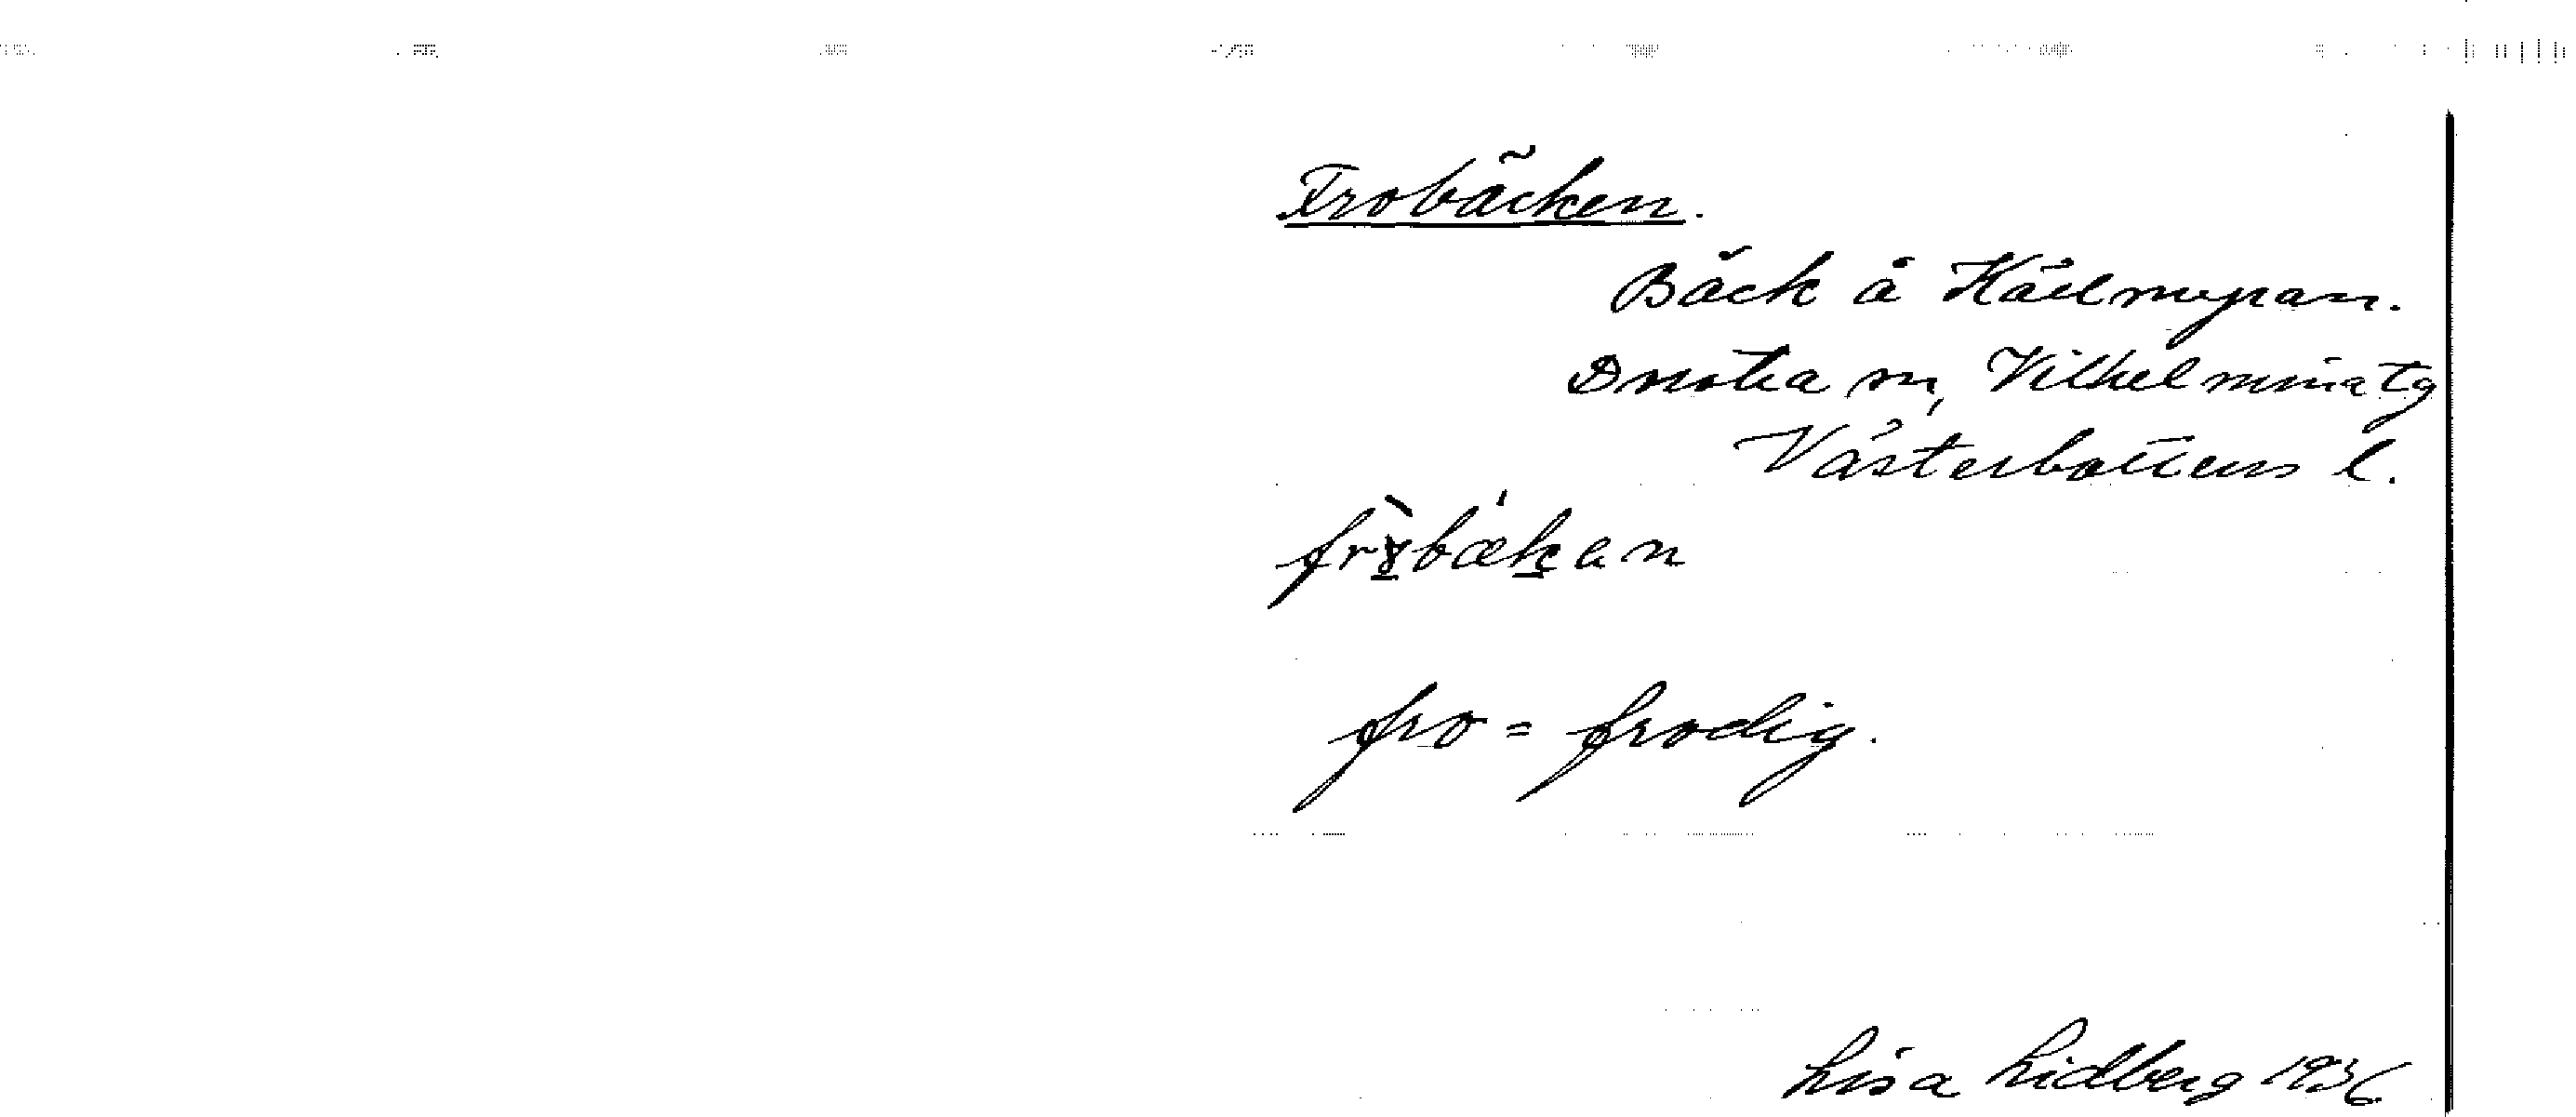 Frobäcken.
Bäck å Hälmyran.
Dorotea sn, Vilhelmina tg
Västerbottens l.
fro = frodig.
Lisa Lidberg 1936